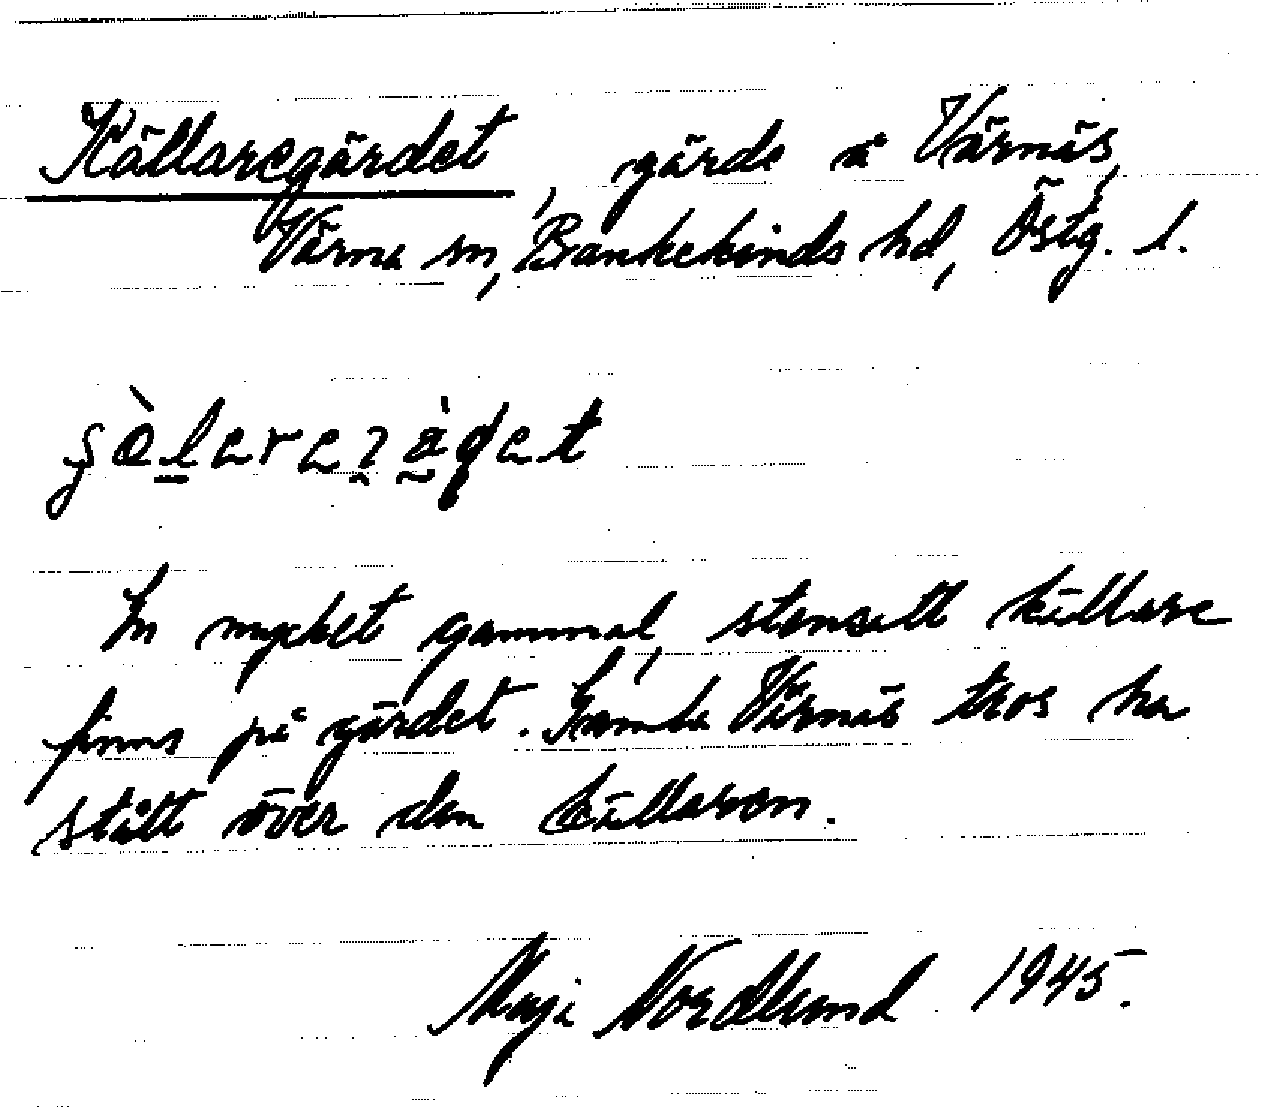 Källaregärdet, gärde å Värnäs,
Värna sn, Bankekinds hd, Östg. l.
En mycket gammal, stensatt källare
finns på gärdet. Gamla Värnäs tros ha
stått över den källaren.
Maja Nordlund 1945.